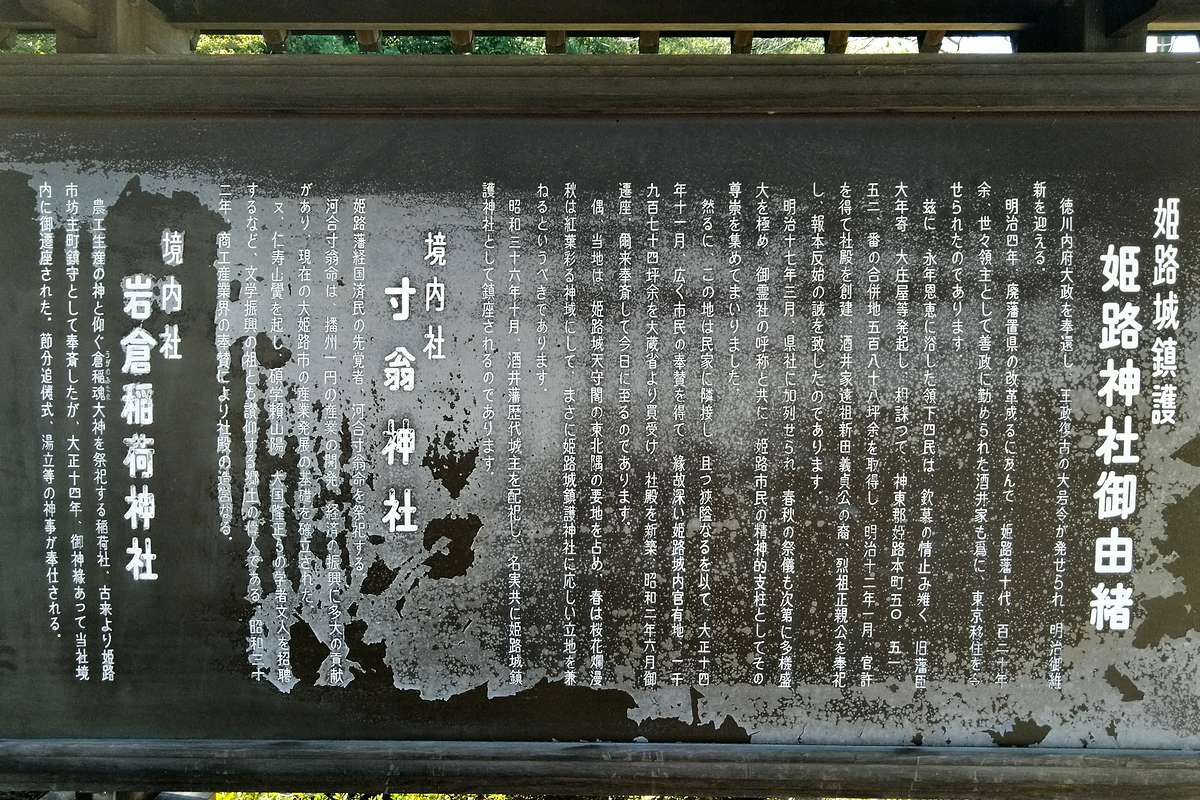 姫路城鎮護
姫路神社御由緒
徳川内府大政を奉還し 王政復古の大号令が発せられ 明治御維
新を迎える.
明治四年 廃藩置県の改革成るに及んで 姫路藩十代 百二十年
余、世々領主として善政に勤められた酒井家も爲に、東京移住を令
せられたのであります.
茲に 永年恩恵に浴した領下四民は 欽慕の情止み難く 旧藩臣
大年寄、大庄屋等発起し 相謀つて 神東郡姫路本町五〇 五一
五二 番の合併地五百八十八坪余を取得し、明治十二年一月 官許
を得て社殿を創建、酒井家遠祖新田義貞公の裔、烈祖正親公を奉祀
し、報本反始の誠を致したのであります.
明治十七年三月 県社に加列せられ 春秋の祭儀も次第に多様盛
大を極め 御霊社の呼称と共に 姫路市民の精神的支柱としてその
尊崇を集めてまいりました.
然るに この地は民家に隣接し 且つ狭隘なるを以て 大正十四
年十一月 広く市民の奉賛を得て 縁故深い姫路城内官有地 一千
九百七十四坪余を大蔵省より買受け 社殿を新築 昭和二年六月御
遷座 爾来奉斎して今日に至るのであります.
偶、当地は 姫路城天守閣の東北隅の要地を占め 春は桜花爛漫
秋は紅葉彩る神域にして まさに姫路城鎮護神社に応しい立地を兼
ねるというべきであります.
昭和三十六年十月 酒井藩歴代城主を配祀し、名実共に姫路城鎮
護神社として鎮座されるのであります.
境内社
寸翁神社
姫路藩経国済民の先覚者 河合寸翁命を祭祀する.
河合寸翁命は 播州一円の産業の開発 経済の振興に多大の貢献
があり、現在の大姫路市の産業発展の基礎を確立された.
又、仁寿山黌を起し 碩学頼山陽 大国隆正らの学者文人を招聘
するなど、文学振興の祖とも讃仰する郷土の偉人である 昭和三十
二年 商工産業界の奉賛により社殿の造営なる.
境内社
岩倉稲荷神社
農工生産の神と仰ぐ倉稲魂大神を祭祀する稲荷社、古来より姫路
うがのみたま
市坊主町鎮守として奉斎したが、大正十四年、御神縁あつて当社境
内に御遷座された. 節分追儺式、湯立等の神事が奉仕される.